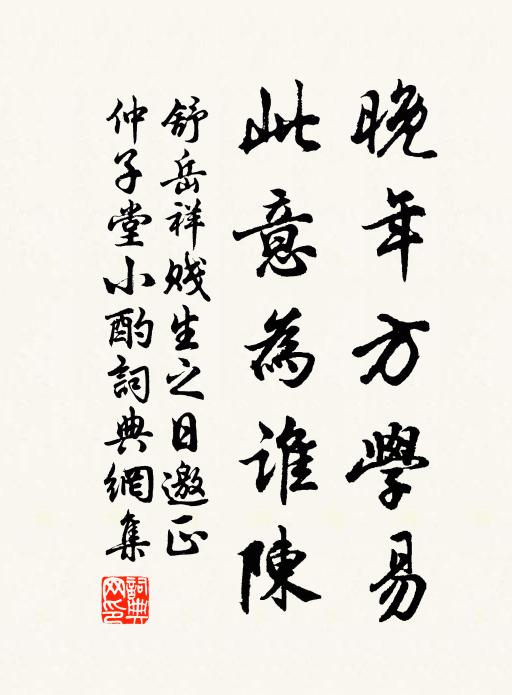 晚年方學易
此意為誰陳
舒岳祥賤生之日邀正
仲子堂小酌詞典網集
詞典
網印